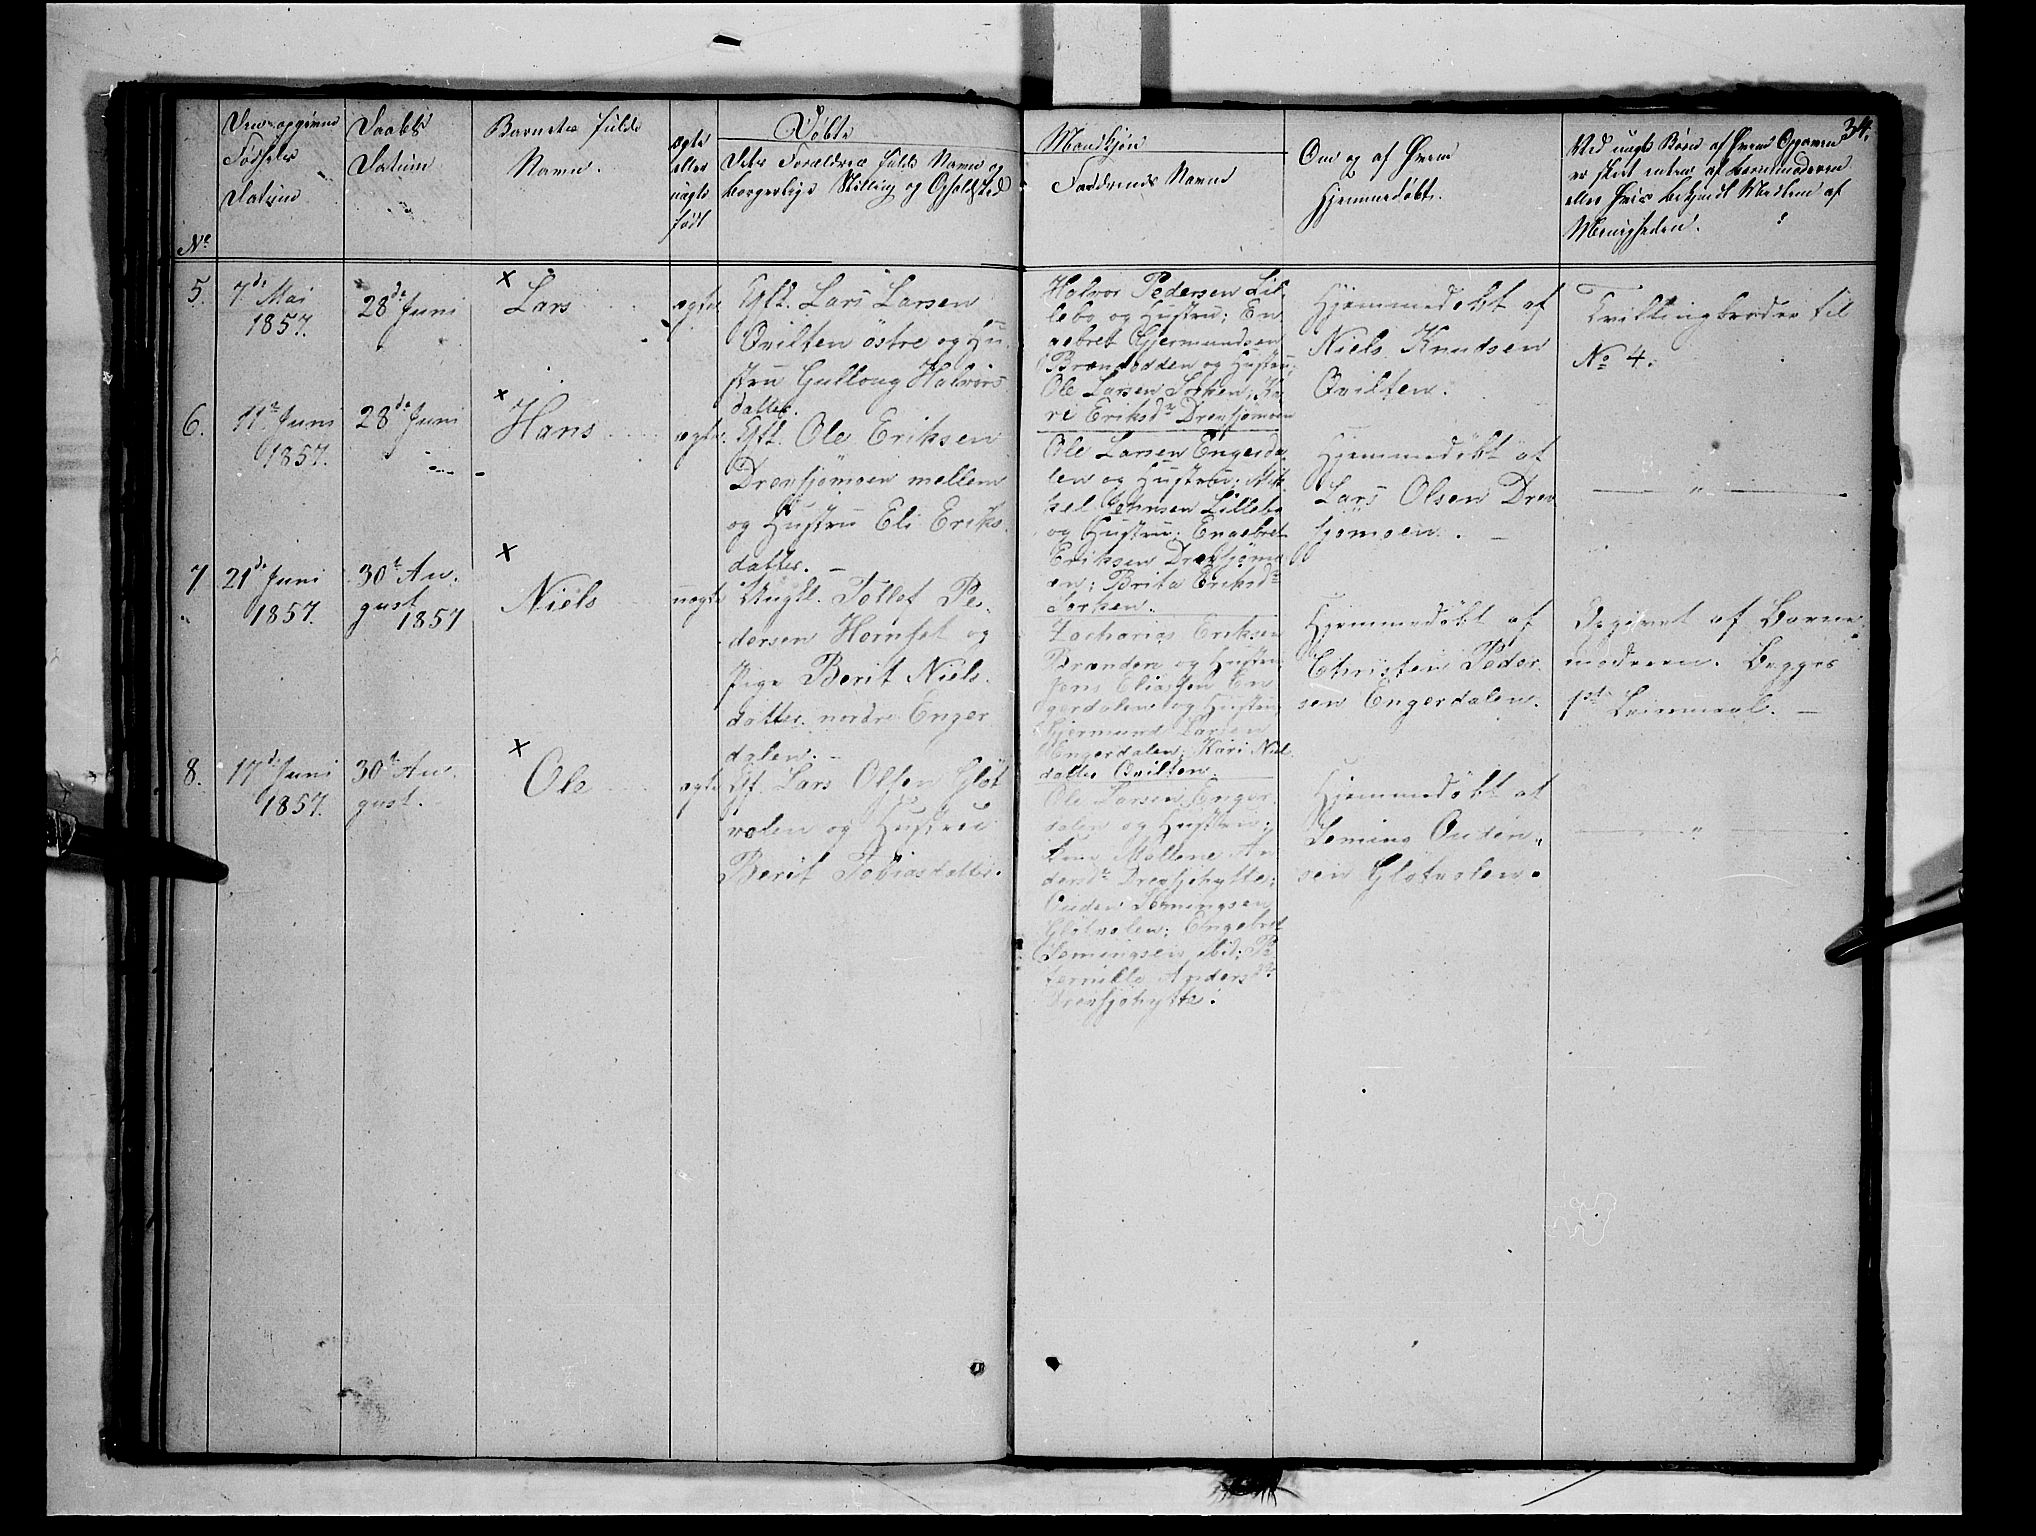 34.
Døbte
Mandkjøn
No
Den opgivne Fødsels Datum
Daabs Datum
Barnets fulde Navn.
ægte eller uægte født
Dets Forældres fulde Navn og borgerlige Stilling og Opholdsted
Faddernes Navne
Om og af Hvem hjemmedøbt.
Ved uægte Børn af Hvem Opgaven
er skeet enten af Barnemoderen
eller hvis bekjendt Medlem af
Menigheden.
5.
7de Mai
1857.
28de Juni
x
Lars
ægte
Gft. Lars Larsen
Qvilten östre og Hu
stru Gulloug Halvors
datter.
Halvor Pedersen Lil
lebo og Hustru; En
gebret Gjermundsen
Brændodden og Hustru;
Ole Larsen Sorken, Ka
ri Eriksdr Drevsjømoen
Hjemmedøbt af
Niels Knudsen
Qvilten.
Tvillingbroder til
No 4.
6.
11te Juni
1857.
28de Juni
x
Hans
ægte
Gft. Ole Eriksen
Drevsjømoen mellem
og Hustru Eli Eriks
datter. —
Ole Larsen Engerda
len og Hustru; Mik
kel Lillebo
og Hustru; Engebret
Eriksen Drevsjømo
en; Brita Eriksdr
Sorken.
Hjemmedøbt af
Lars Olsen Drev
sjømoen.
— " —
7
21de Juni
1857.
30te Au
gust
1857
x
Niels
uægte
Ungk. Tollof Pe
dersen Hornset og
Pige Berit Niels
datter nordre Enger
dalen. —
Zacharias Eriksen
Brænden og Hustru
Jens Eliassen En
gerdalen og Hustru
Gjermund Larsen
Engerdalen; Kari Niels
datter Qvilten.
Hjemmedøbt af
Christen Peder
sen Engerdalen.
Opgivet af Barne
moderen. Begges
1ste Leiermaal. —
8.
17de Juni
1857.
30te Au
gust.
x
Ole
ægte
Gf. Lars Olsen Gløt
volen og Hustrue
Berit Tobiasdatter.
Ole Larsen Enger
dalen og Hustru;
Mallene An
dersdr Drevsjøhytte;
Ouden Hemingsen
Gløtvolen; Engebret
Semingsen ibid; Pe
ternille Andersdr
Drevsjøhytte.
Hjemmedøbt af
Seming Ouden
sen Gløtvolen.
— " —